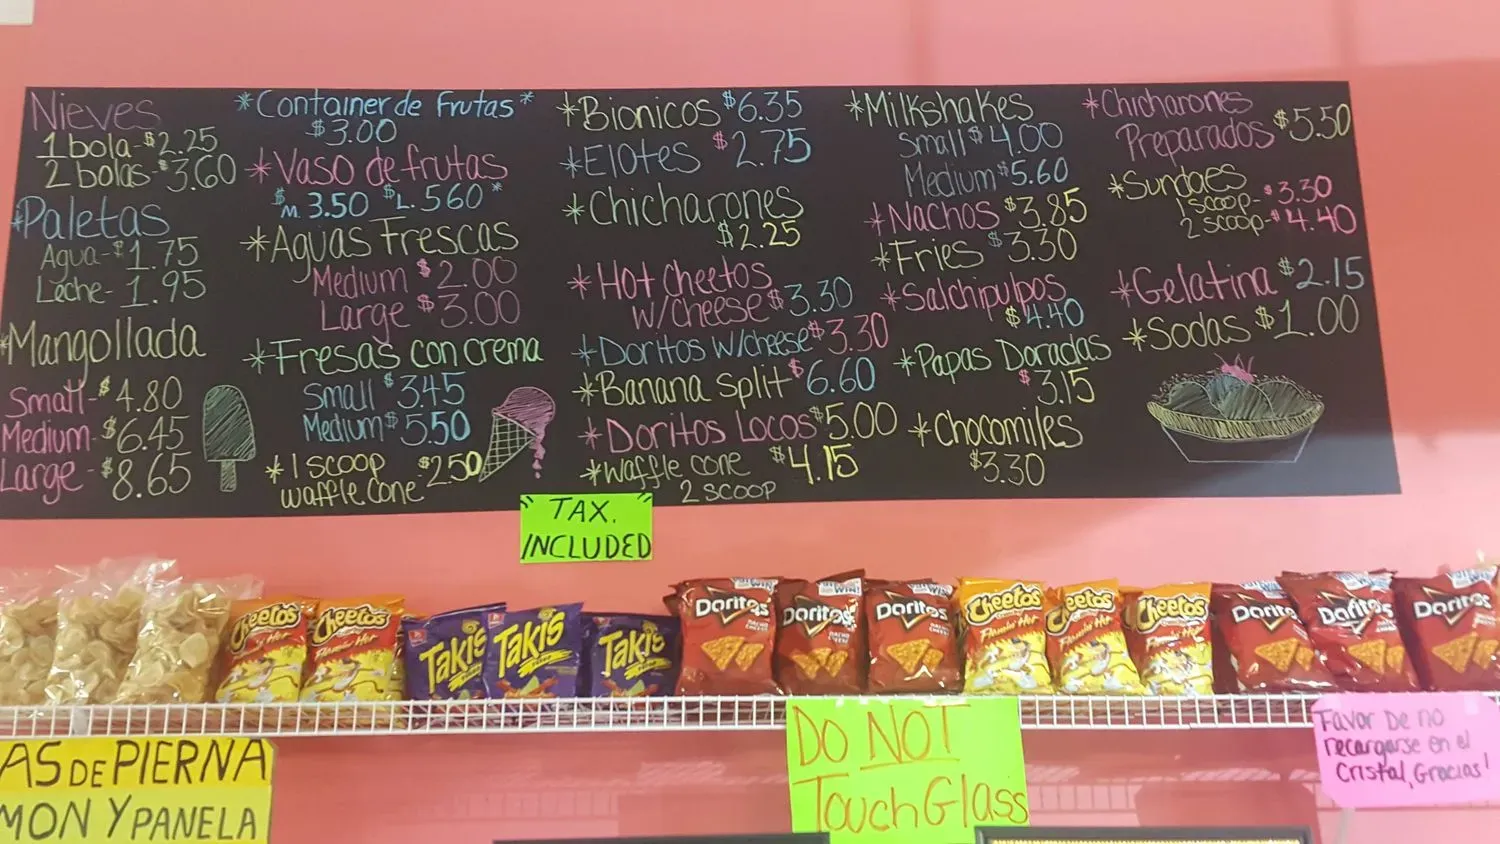 Nieves
1 bola-$2.25
2 bolas-$3.60
*Paletas
Agua-$1.75
Leche-1.95
*Mangollada
Small-$4.80
Medium-$6.45
Large-$8.65
*Container de Frutas*
$3.00
*Vaso de frutas
$M.3.50 $L.560*
*Aguas Frescas
Medium $2.00
Large $3.00
*Fresas con crema
Small $345
Medium $5.50
*1 scoop $250
waffle cone
*Bionicos $6.35
*Elotes $2.75
*Chicharones
$2.25
*Hot Cheetos
w/cheese $3.30
*Doritos w/cheese $3.30
*Banana Split $6.60
*Doritos Locos $5.00
*Waffle cone $4.15
2 scoop
*Milkshakes
Small $4.00
Medium $5.60
*Nachos $3.85
*Fries $3.30
*Salchipulpos
$4.40
*Papas Doradas
$3.15
*Chocomiles
$3.30
*Chicharones
Preparados $5.50
*Sundaes
1 scoop-$3.30
2 scoop-$4.40
*Gelatina $2.15
*Sodas $1.00
"TAX.
INCLUDED
Cheetos
Flamin' Hot
Cheetos
Flamin' Hot
Takis
Takis
Takis
Doritos
NACHO CHEESE
Doritos
Doritos
Cheetos
Flamin' Hot
Cheetos
Flamin' Hot
Cheetos
Flamin' Hot
Doritos
Doritos
Doritos
AS DE PIERNA
MON Y PANELA
DO NOT
Touch Glass
Favor De no
recargarse en el
Cristal, Gracias!